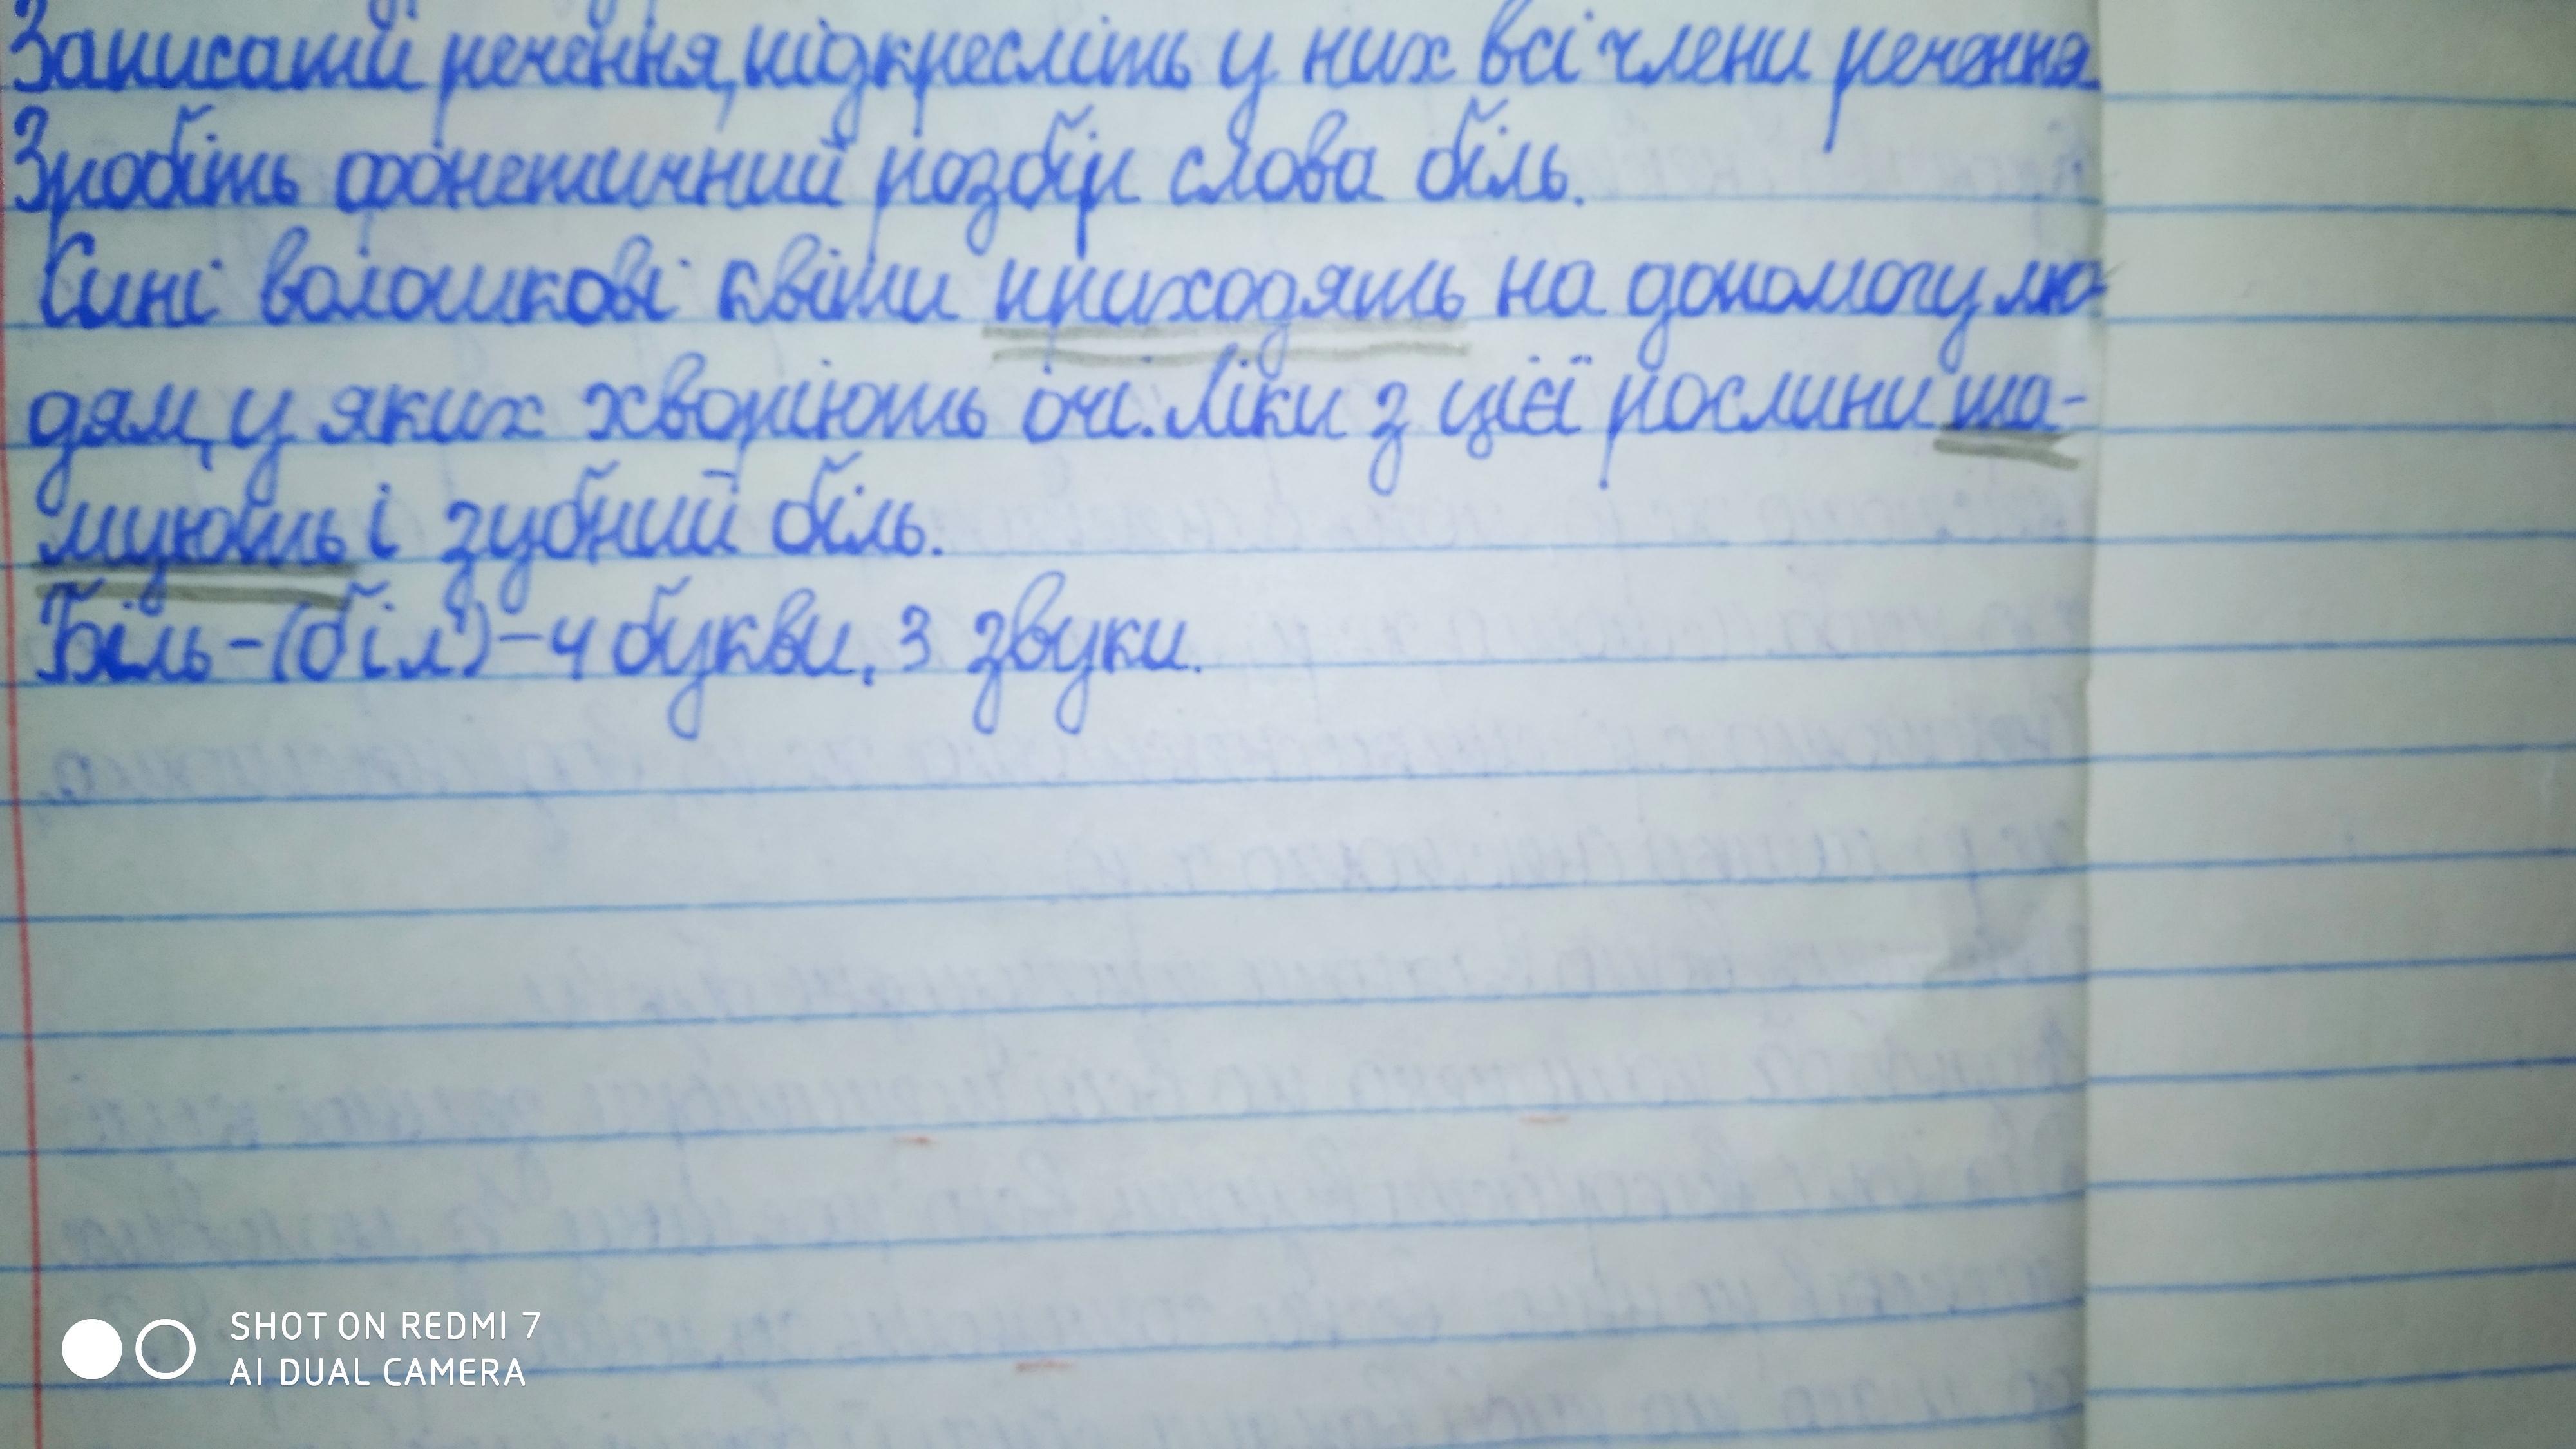 Записати речення, підкресліть у них всі члени речення
Зробіть фонетичний розбір слова біль.
Сині волошкові квіти приходять на допомогу лю-
дям, у яких хворіють очі. Ліки з цієї рослини та-
мують і зубний біль.
Біль-(біл')-4 букви, 3 звуки.
SHOT ON REDMI 7
AI DUAL CAMERA